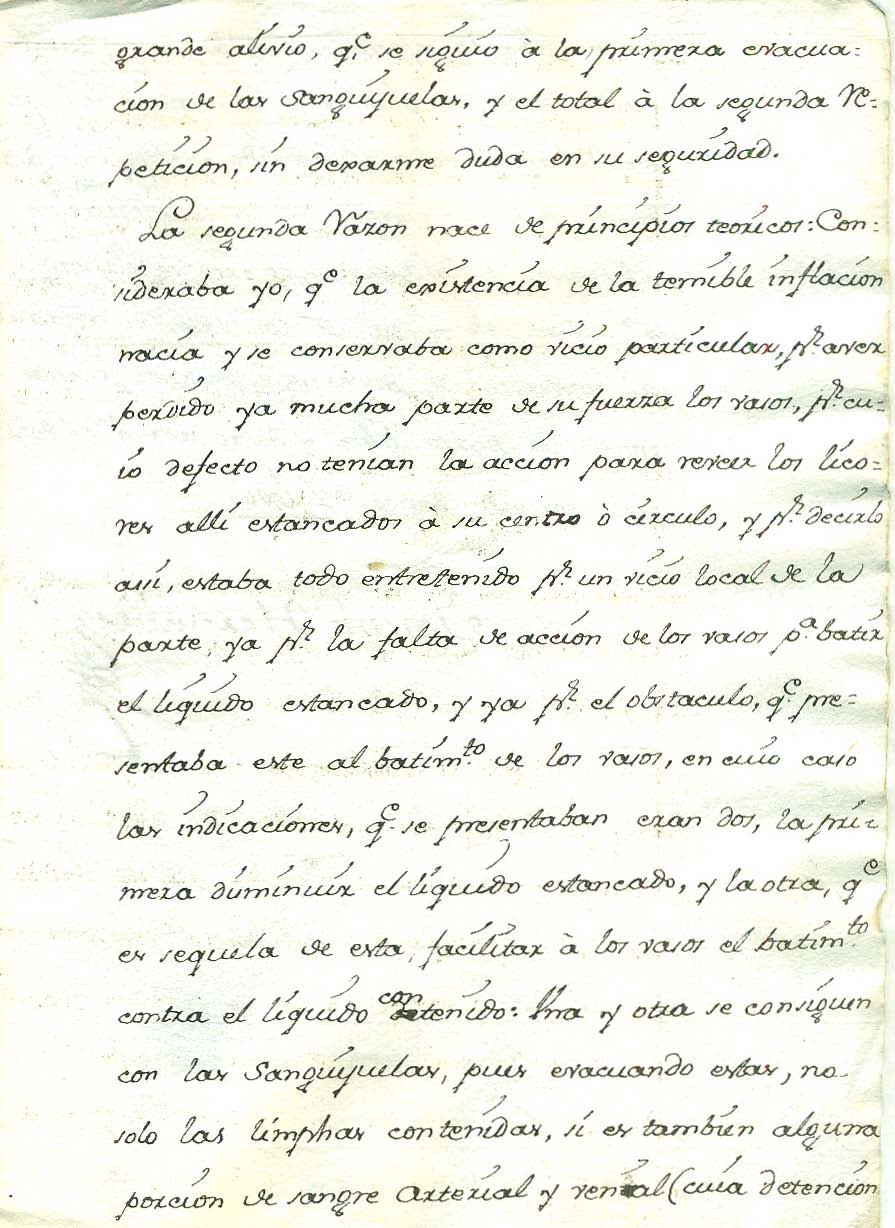 grande alivio, q.e se siguio à la primera evacua=
cion de las Sanguijuelas, y el total à la segunda Re=
peticion, sin dexarme duda en su seguridad.
La segunda Râzon nace de principios teoricos: Con=
sideraba yo, q.e la existencia de la terrible inflacion
nacia y se conservaba como vicio particular, p.r aver
perdido ya mucha parte de su fuerza los vasos, p.r cu=
io defecto no tenian la accion para rever los lico=
res alli estancados à su centro ò circulo, y p.r decirlo
asi, estaba todo entretenido p.r un vicio local de la
parte, ya p.r la falta de accion de los vasos p.a batir
el liquido estancado, y ya p.r el obstaculo, q.e pre=
sentaba este al batim.to de los vasos, en cuio caso
las indicaciones, q.e se presentaban eran dos, la pri=
mera diminuir el liquido estancado, y la otra, q.e
es sequela de esta, facilitar à los vasos el batim.to
contra el liquido contenido: Una y otra se consiguen
con las Sanguijuelas, pues evacuando estas, no
solo las limphas contenidas, si es tambien alguna
porcion de sangre Arterial y venial (cuia detencion